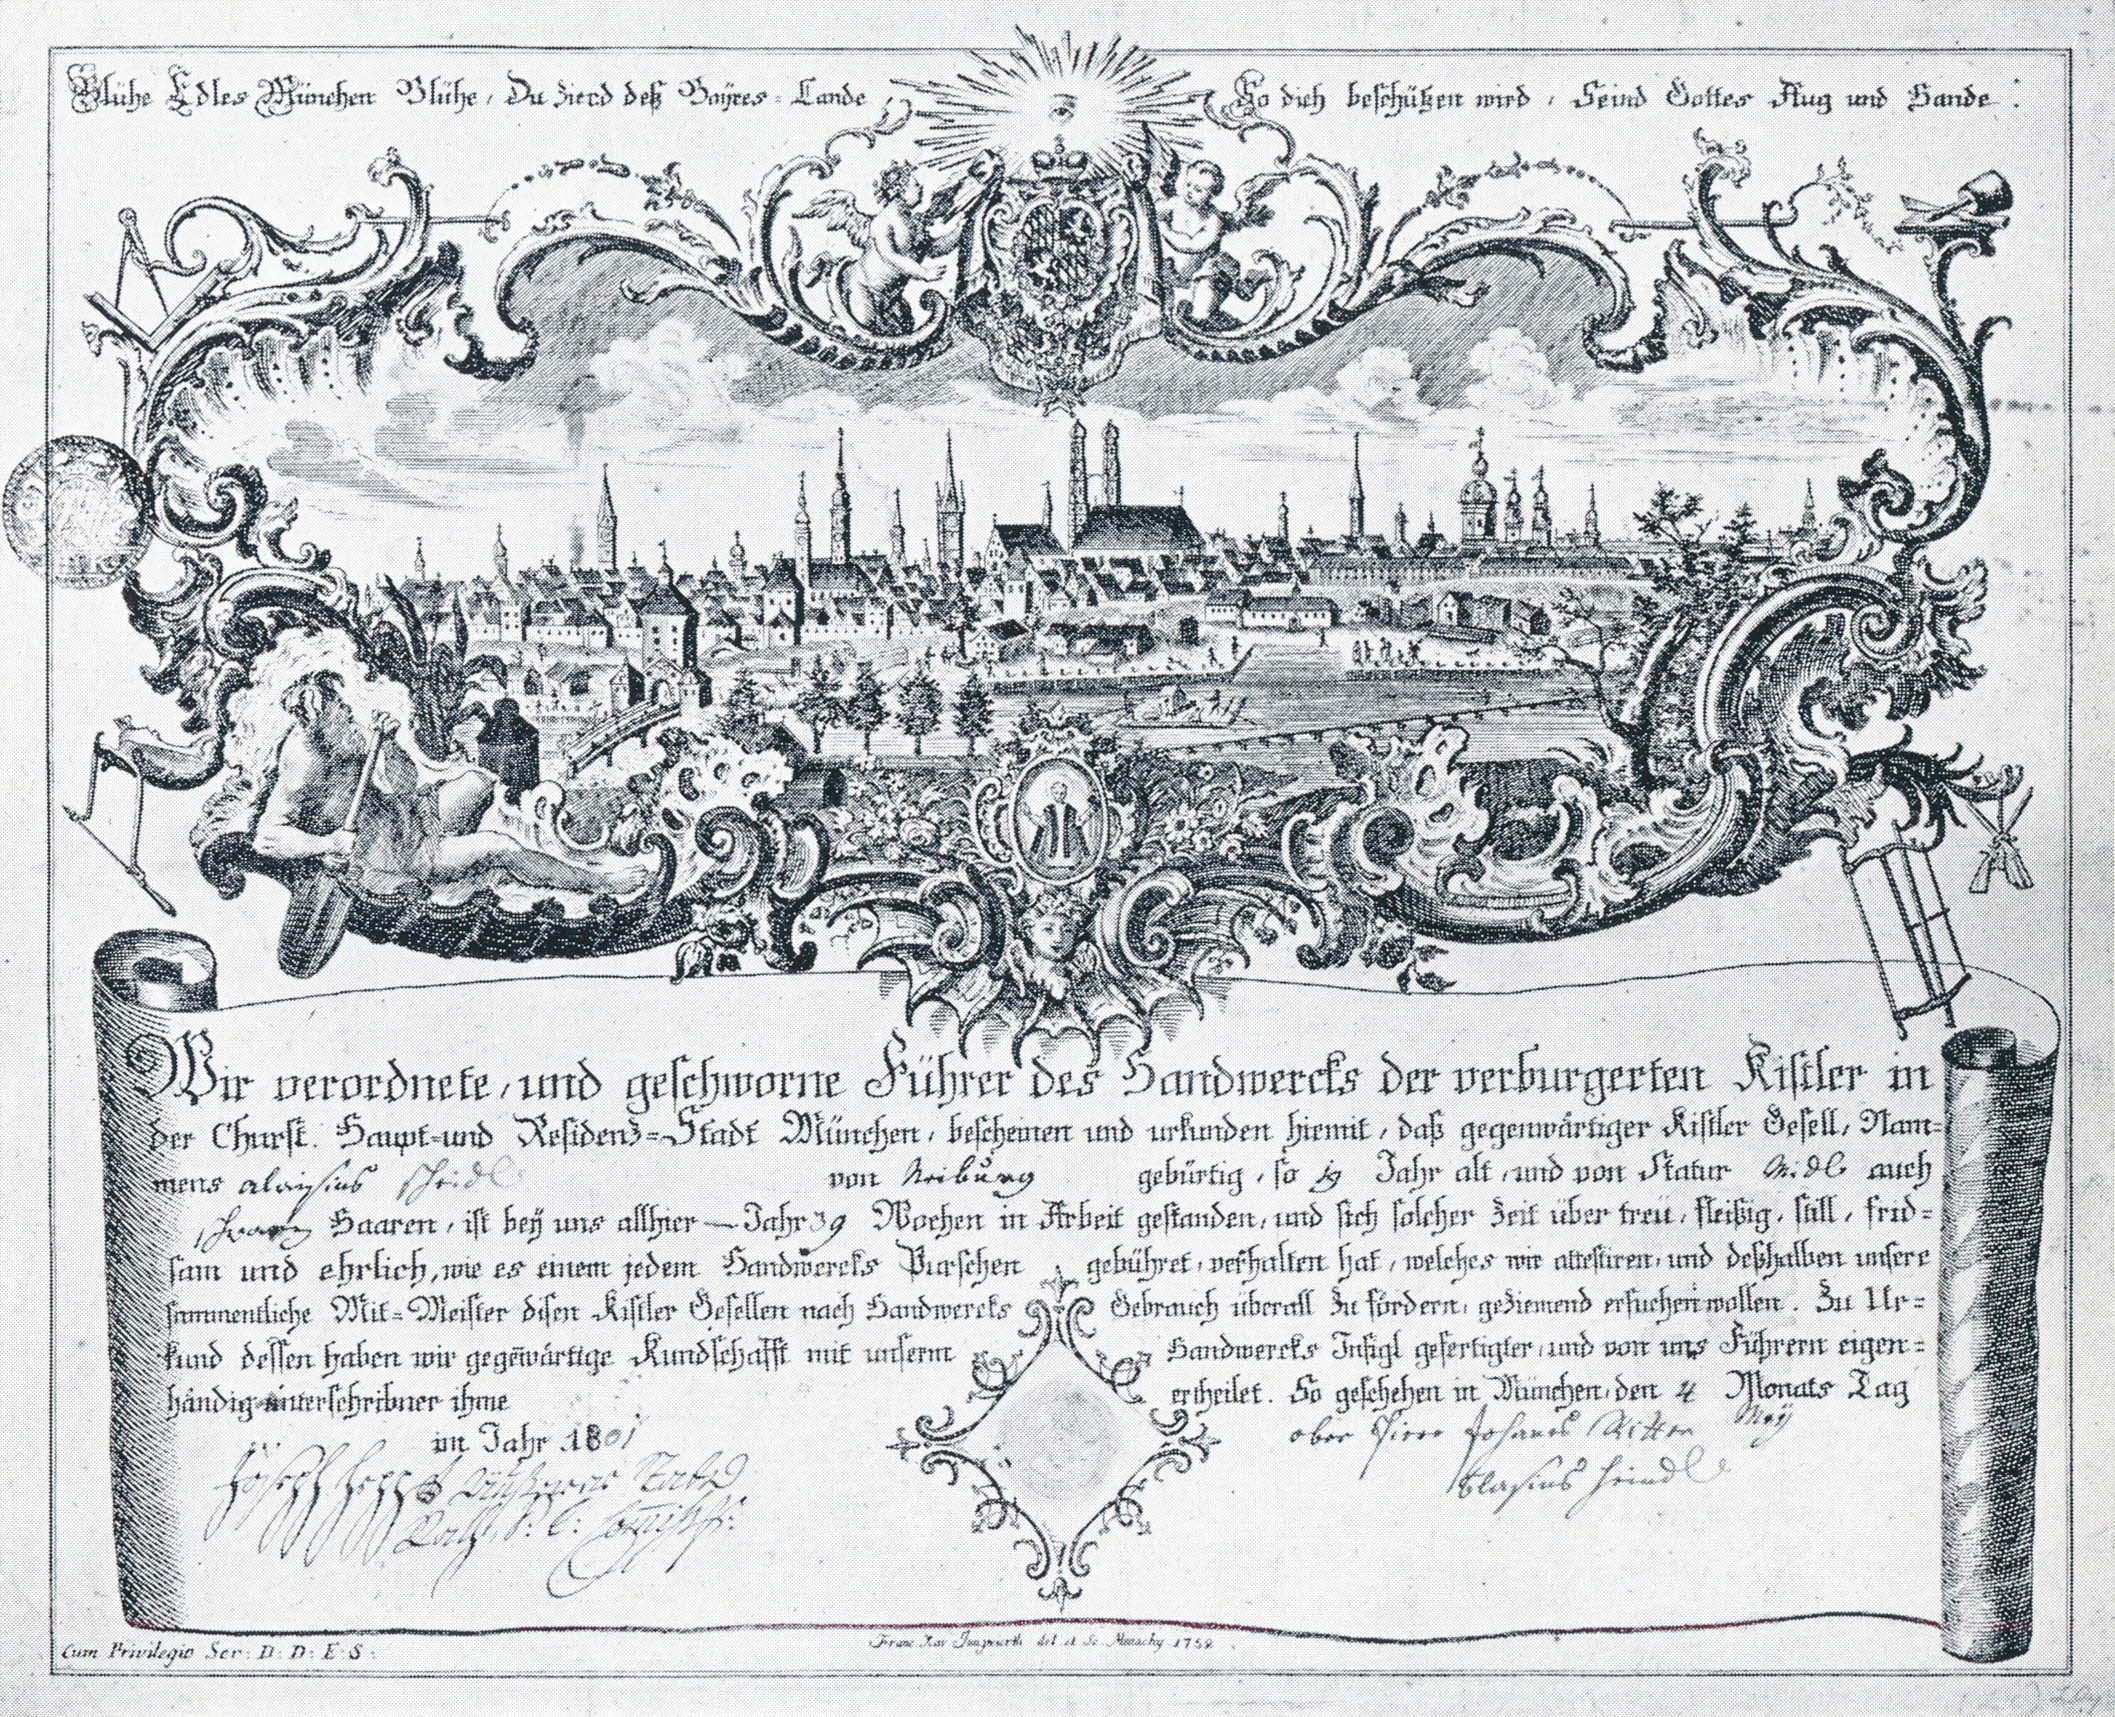 Blühe Edles München Blühe, Du Zierd deß Bayres=Lande, So dich beschützen wird, Seind Gottes Aug und Hände.
Wir verordnete, und geschworne Führer des Handwercks der verburgerten Kistler in
der Churft. Haupt=und Residenz=Stadt München, bescheinen und urkunden hiemit, daß gegenwärtiger Kistler Gesell, Nam=
mens aloysius von Neiburg gebürtig, so 19 Jahr alt, und von Statur midl auch
schwarz Haaren, ist beÿ uns allhier — Jahr 39 Wochen in Arbeit gestanden, und sich solcher Zeit über treü, fleißig, still, frid=
sam und ehrlich, wie es einem jedem Handwercks Purschen gebühret, verhalten hat, welches wir attestiren, und deßhalben unsere
sammentliche Mit=Meister disen Kistler Gesellen nach Handwercks Gebrauch überall Zu fördern, geziemend ersuchen wollen. Zu Ur=
kund dessen haben wir gegenwärtige Kundschafft mit unserm Handwercks Insigl gefertigter, und von uns Führern eigen=
händig unterschribner ihme ertheilet. So geschehen in München, den 4 Monats Tag
Meÿ
im Jahr 1801
Johanes Ritter
Joseph
Blasius
Cum Privilegio Ser: D: D: E: S:
Franc. Xav. Jungwirth del. et Sc. Monachy. 1752.